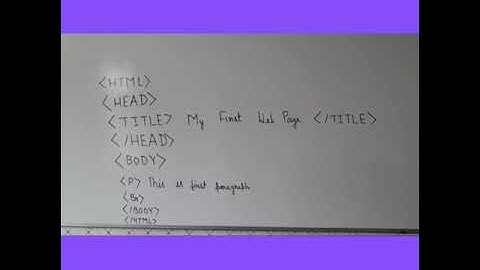 <HTML>
<HEAD>
<TITLE> My First Web Page </TITLE>
</HEAD>
<BODY>
<P> This is first paragraph
<Br>
</BODY>
</HTML>